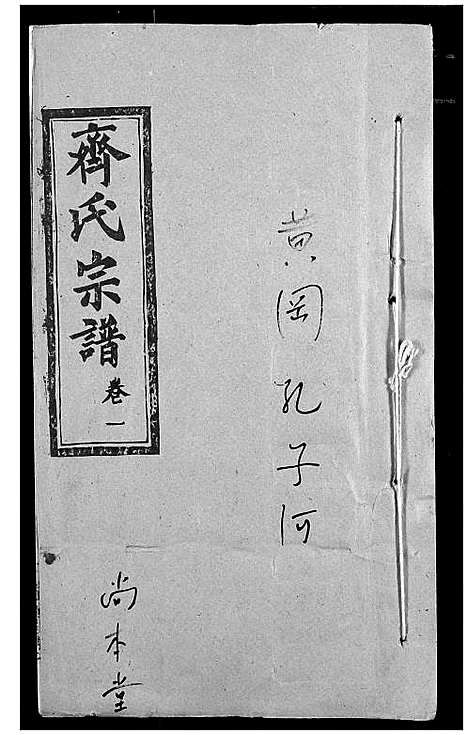 黄岡孔子河
齊氏宗譜
卷一
尚本堂